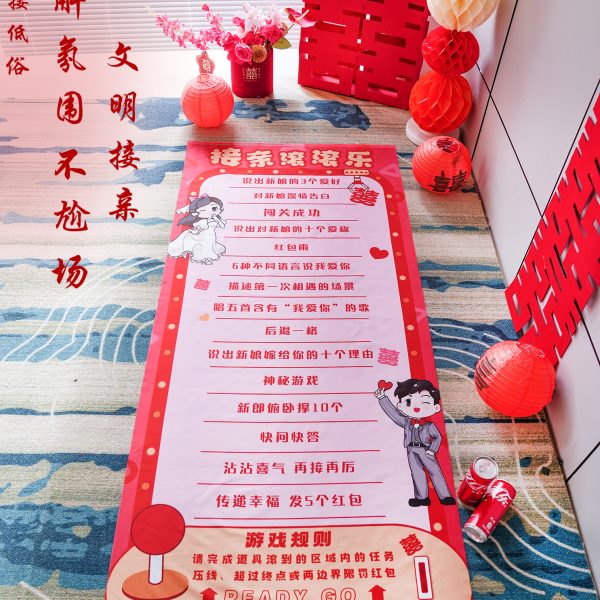 文明接亲
解氛围不尬场
接低俗
接亲滚滚乐
说出新娘的3个爱好
对新娘深情告白
闯关成功
说出对新娘的十个爱称
红包雨
6种不同语言说我爱你
描述第一次相遇的场景
唱五首含有“我爱你”的歌
后退一格
说出新娘嫁给你的十个理由
神秘游戏
新郎俯卧撑10个
快问快答
沾沾喜气 再接再厉
传递幸福 发5个红包
游戏规则
请完成道具滚到的区域内的任务
压线、超过终点或两边界限罚红包
READY GO